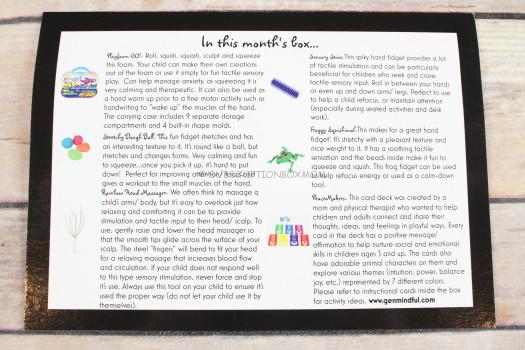 In this month's box...
Playfoam GO!- Roll, squish, squash, sculpt and squeeze
this foam. Your child can make their own creations
out of the foam or use it simply for fun tactile sensory
play. Can help manage anxiety, as squeezing it is
very calming and therapeutic. It can also be used as
a hand warm up prior to a fine motor activity such as
handwriting to "wake up" the muscles of the hand.
The carrying case includes 9 separate storage
compartments and 4 built-in shape molds.
Stretchy Dough Ball- This fun fidget stretches and has
an interesting texture to it. It's round like a ball, but
stretches and changes forms. Very calming and fun
to squeeze...once you pick it up, it's hard to put
down! Perfect for improving attention/focus as it
gives a workout to the small muscles of the hand.
Rainbow Head Massager- We often think to massage a
child's arms/ body, but it's easy to overlook just how
relaxing and comforting it can be to provide
stimulation and tactile input to their head/ scalp. To
use, gently raise and lower the head massager so
that the smooth tips glide across the surface of your
scalp. The steel "fingers" will bend to fit your head
for a relaxing massage that increases blood flow
and circulation. If your child does not respond well
to this type sensory stimulation, never force and stop
it's use. Always use this tool on your child to ensure it's
used the proper way (do not let your child use it by
themselves).
This spiky hand fidget provides a lot
of tactile stimulation and can be particularly
beneficial for children who seek and crave
tactile sensory input. Roll in between your hands
or even up and down arms/ legs. Perfect to use
to help a child refocus, or maintain attention
(especially during seated activities and desk
work).
Froggy Squishimal-This makes for a great hand
fidget! It's stretchy with a pleasant texture and
nice weight to it. It has a soothing tactile
sensation and the beads inside make it fun to
squeeze and squish. This frog fidget can be used
to help refocus energy or used as a calm-down
tool.
PeaceMakers- This card deck was created by a
mom and physical therapist who wanted to help
children and adults connect and share their
thoughts, ideas, and feelings in playful ways. Every
card in the deck has a positive message/
affirmation to help nurture social and emotional
skills in children ages 3 and up. The cards also
have adorable animal characters on them and
explore various themes (intuition, power, balance
joy, etc.) represented by 7 different colors.
Please refer to instructional cards inside the box
for activity ideas. www.genmindful.com